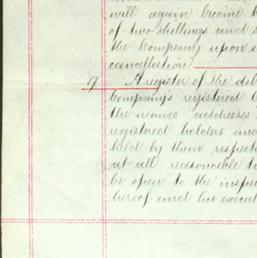 will again become
of two shillings and s
the Company upon
cancellation
9 A register of the de
Company's registered
the names addresses
registered holders an
held by them respect
at all reasonable t
be open to the inspe
hereof and his execut